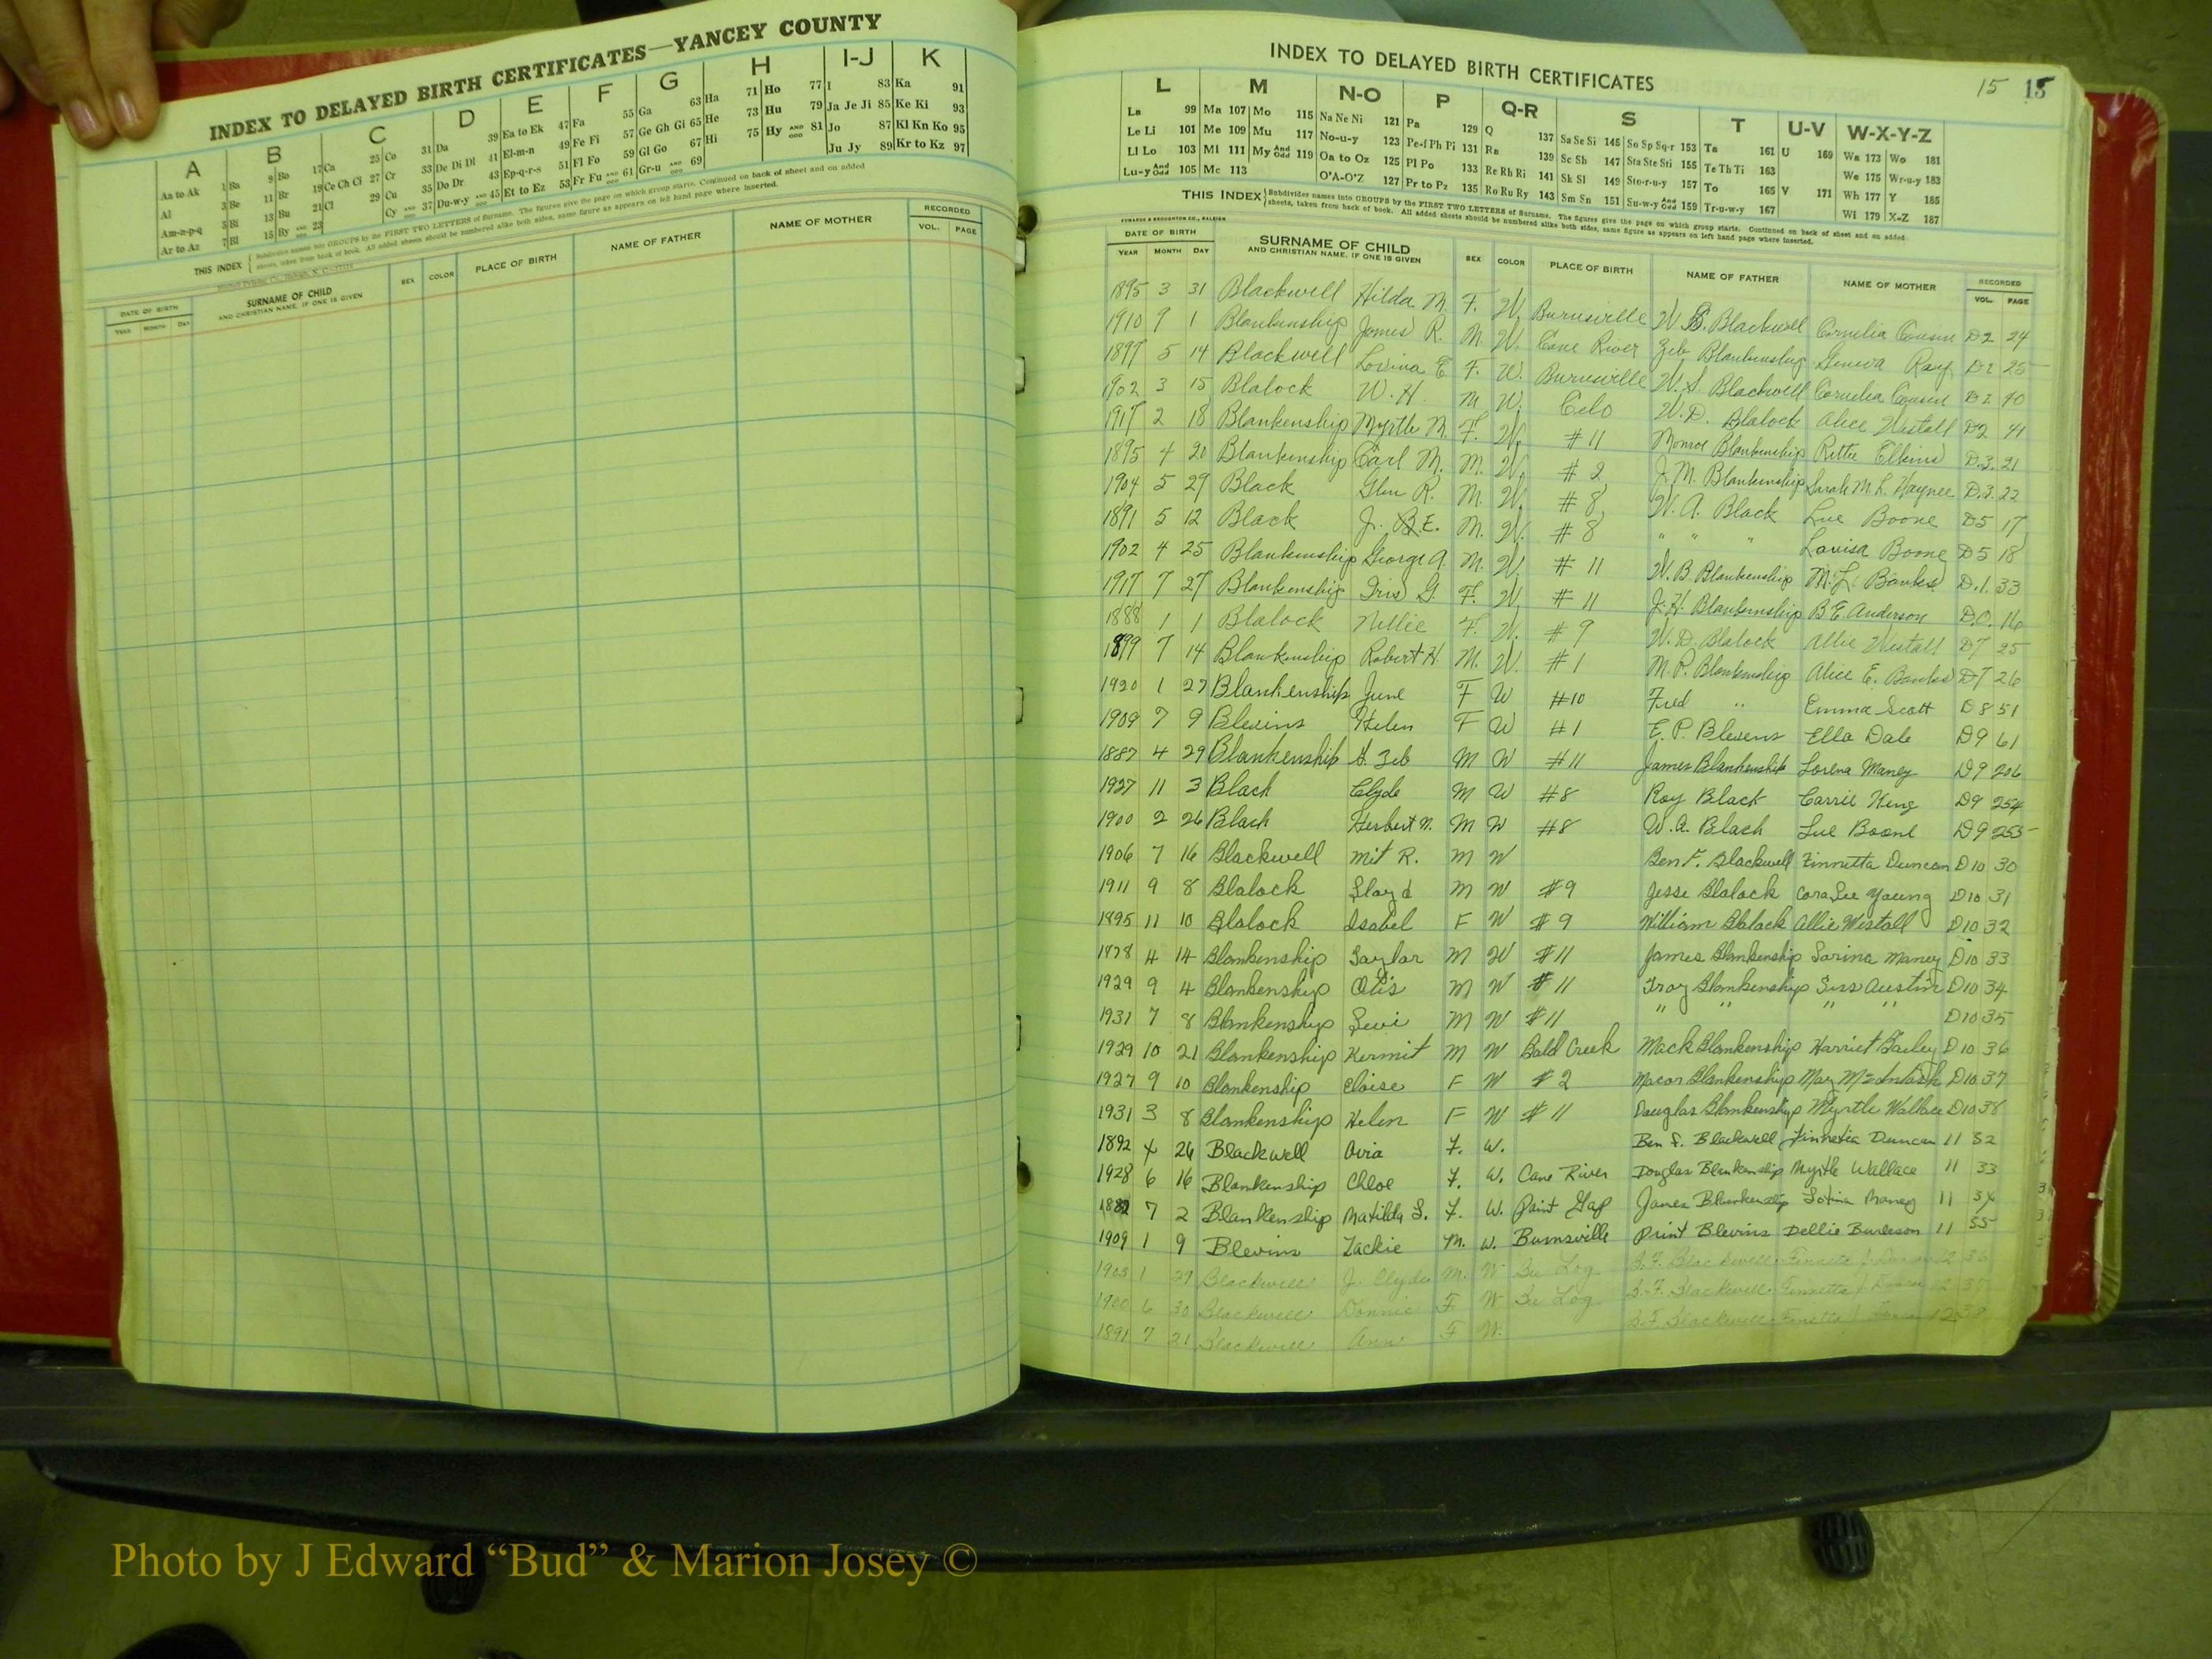 INDEX TO DELAYED BIRTH CERTIFICATES—YANCEY COUNTY
A B C D E F G H I-J K
Aa to Ak 1 Ba 9 Bo 17 Ca 25 Co 31 Da 39 Ea to Ek 47 Fa 55 Ga 63 Ha 71 Ho 77 I 83 Ka 91
Al 3 Be 11 Br 19 Ce Ch Ci 27 Cr 33 De Di Dl 41 El-m-n 49 Fe Fi 57 Ge Gh Gi 65 He 73 Hu 79 Ja Je Ji 85 Ke Ki 93
Am-n-p-q 5 Bi 13 Bu 21 Cl 29 Cu 35 Do Dr 43 Ep-q-r-s 51 Fl Fo 59 Gl Go 67 Hi 75 Hy AND ODD 81 Jo 87 Kl Kn Ko 95
Ar to Az 7 Bl 15 By AND ODD 23 Cy AND ODD 37 Du-w-y AND ODD 45 Et to Ez 53 Fr Fu AND ODD 61 Gr-u AND ODD 69 Ju Jy 89 Kr to Kz 97
THIS INDEX Subdivides names into GROUPS by the FIRST TWO LETTERS of Surname. The figures give the page on which group starts. Continued on back of sheet and on added
sheets, taken from back of book. All added sheets should be numbered alike both sides, same figure as appears on left hand page where inserted.
DATE OF BIRTH SURNAME OF CHILD SEX COLOR PLACE OF BIRTH NAME OF FATHER NAME OF MOTHER RECORDED
YEAR MONTH DAY AND CHRISTIAN NAME, IF ONE IS GIVEN VOL. PAGE
INDEX TO DELAYED BIRTH CERTIFICATES 15 15
L M N-O P Q-R S T U-V W-X-Y-Z
La 99 Ma 107 Mo 115 Na Ne Ni 121 Pa 129 Q 137 Sa Se Si 145 So Sp Sq-r 153 Ta 161 U 169 Wa 173 Wo 181
Le Li 101 Me 109 Mu 117 No-u-y 123 Pe-f Ph Pi 131 Ra 139 Sc Sh 147 Sta Ste Sti 155 Te Th Ti 163 We 175 Wr-u-y 183
Ll Lo 103 Mi 111 My And Odd 119 Oa to Oz 125 Pl Po 133 Re Rh Ri 141 Sk Sl 149 Sto-r-u-y 157 To 165 V 171 Wh 177 Y 185
Lu-y And Odd 105 Mc 113 O'A-O'Z 127 Pr to Pz 135 Ro Ru Ry 143 Sm Sn 151 Su-w-y And Odd 159 Tr-u-w-y 167 Wi 179 X-Z 187
THIS INDEX Subdivides names into GROUPS by the FIRST TWO LETTERS of Surname. The figures give the page on which group starts. Continued on back of sheet and on added
sheets, taken from back of book. All added sheets should be numbered alike both sides, same figure as appears on left hand page where inserted.
EDWARDS & BROUGHTON CO., RALEIGH
DATE OF BIRTH SURNAME OF CHILD SEX COLOR PLACE OF BIRTH NAME OF FATHER NAME OF MOTHER RECORDED
YEAR MONTH DAY AND CHRISTIAN NAME, IF ONE IS GIVEN VOL. PAGE
1895 3 31 Blackwell Hilda M. F. W. Burnsville W. S. Blackwell Cornelia D2 24
1910 9 1 Blankenship James R. M. W. Cane River Zeb Blankenship Geneva Ray D2 25
1897 5 14 Blackwell Lovina E F. W. Burnsville W. S. Blackwell Cornelia D2 40
1902 3 15 Blalock W. H. M W. Celo W. D. Blalock Alice Westall D2 41
1917 2 18 Blankenship Myrtle M. F. W. #11 Monroe Blankenship Rettie Elkins D.3. 21
1895 4 20 Blankenship Carl M. M. W. #2 J. M. Blankenship Sarah M. L. Haynee D.3. 22
1904 5 27 Black Glen R. M. W. #8 W. A. Black Lue Boone D5 17
1891 5 12 Black Jr. B.E. M. W. #8 " " " Louisa Boone D5 18
1902 4 25 Blankenship George A. M. W. #11 W. B. Blankenship M. L. Banks D.1. 33
1917 7 27 Blankenship Iris G. F. W. #11 J. H. Blankenship B. E. Anderson D.C. 16
1888 1 1 Blalock Nellie F. W. #9 W. D. Blalock Allie Westall D7 25
1899 7 14 Blankenship Robert H. M. W. #1 M. P. Blankenship Alice E. Banks D7 26
1920 1 27 Blankenship June F W #10 Fred " Emma Scott D8 51
1909 7 9 Blevins Helen F W #1 E. P. Blevens Ella Dale D9 61
1887 4 29 Blankenship G. Zeb M W #11 James Blankenship Lorena Maney D9 206
1927 11 3 Black Clyde M W #8 Roy Black Carrie King D9 254
1900 2 26 Black Herbert N. M W #8 W. A. Black Lue Boone D9 255
1906 7 16 Blackwell Mit R. M W Ben F. Blackwell Finnetta Duncan D10 30
1911 9 8 Blalock Lloyd M W #9 Jesse Blalock Cora Lee Young D10 31
1895 11 10 Blalock Isabel F W #9 William Blalock Allie Westall D10 32
1878 4 14 Blankenship Taylor M W #11 James Blankenship Lorina Maney D10 33
1929 9 4 Blankenship Otis M W #11 Troy Blankenship Siss Austin D10 34
1931 7 8 Blankenship Levi M W #11 " " " " D10 35
1929 10 21 Blankenship Kermit M W Bald Creek Mack Blankenship Harriet Bailey D10 36
1927 9 10 Blankenship Eloise F W #2 Macon Blankenship May McIntosh D10 37
1931 3 8 Blankenship Helen F W #11 Douglas Blankenship Myrtle Wallace D10 38
1892 4 26 Blackwell Ovia F. W. Ben F. Blackwell Finnetta Duncan 11 32
1928 6 16 Blankenship Chloe F. W. Cane River Douglas Blankenship Myrtle Wallace 11 33
1882 7 2 Blankenship Matilda S. F. W. Paint Gap James Blankenship Lorina Maney 11 34
1909 1 9 Blevins Zackie M. W. Burnsville Print Blevins Dellie Burleson 11 55
1903 1 27 Blackwell J. Clyde M. W Bee Log B. F. Blackwell Finnetta J. Duncan 12 36
1900 6 30 Blackwell Donnie F W Bee Log B. F. Blackwell Finnetta J. Duncan 12 37
1891 7 21 Blackwell Ann F W. B. F. Blackwell Finetta J. Duncan 12 38
Photo by J Edward “Bud” & Marion Josey ©